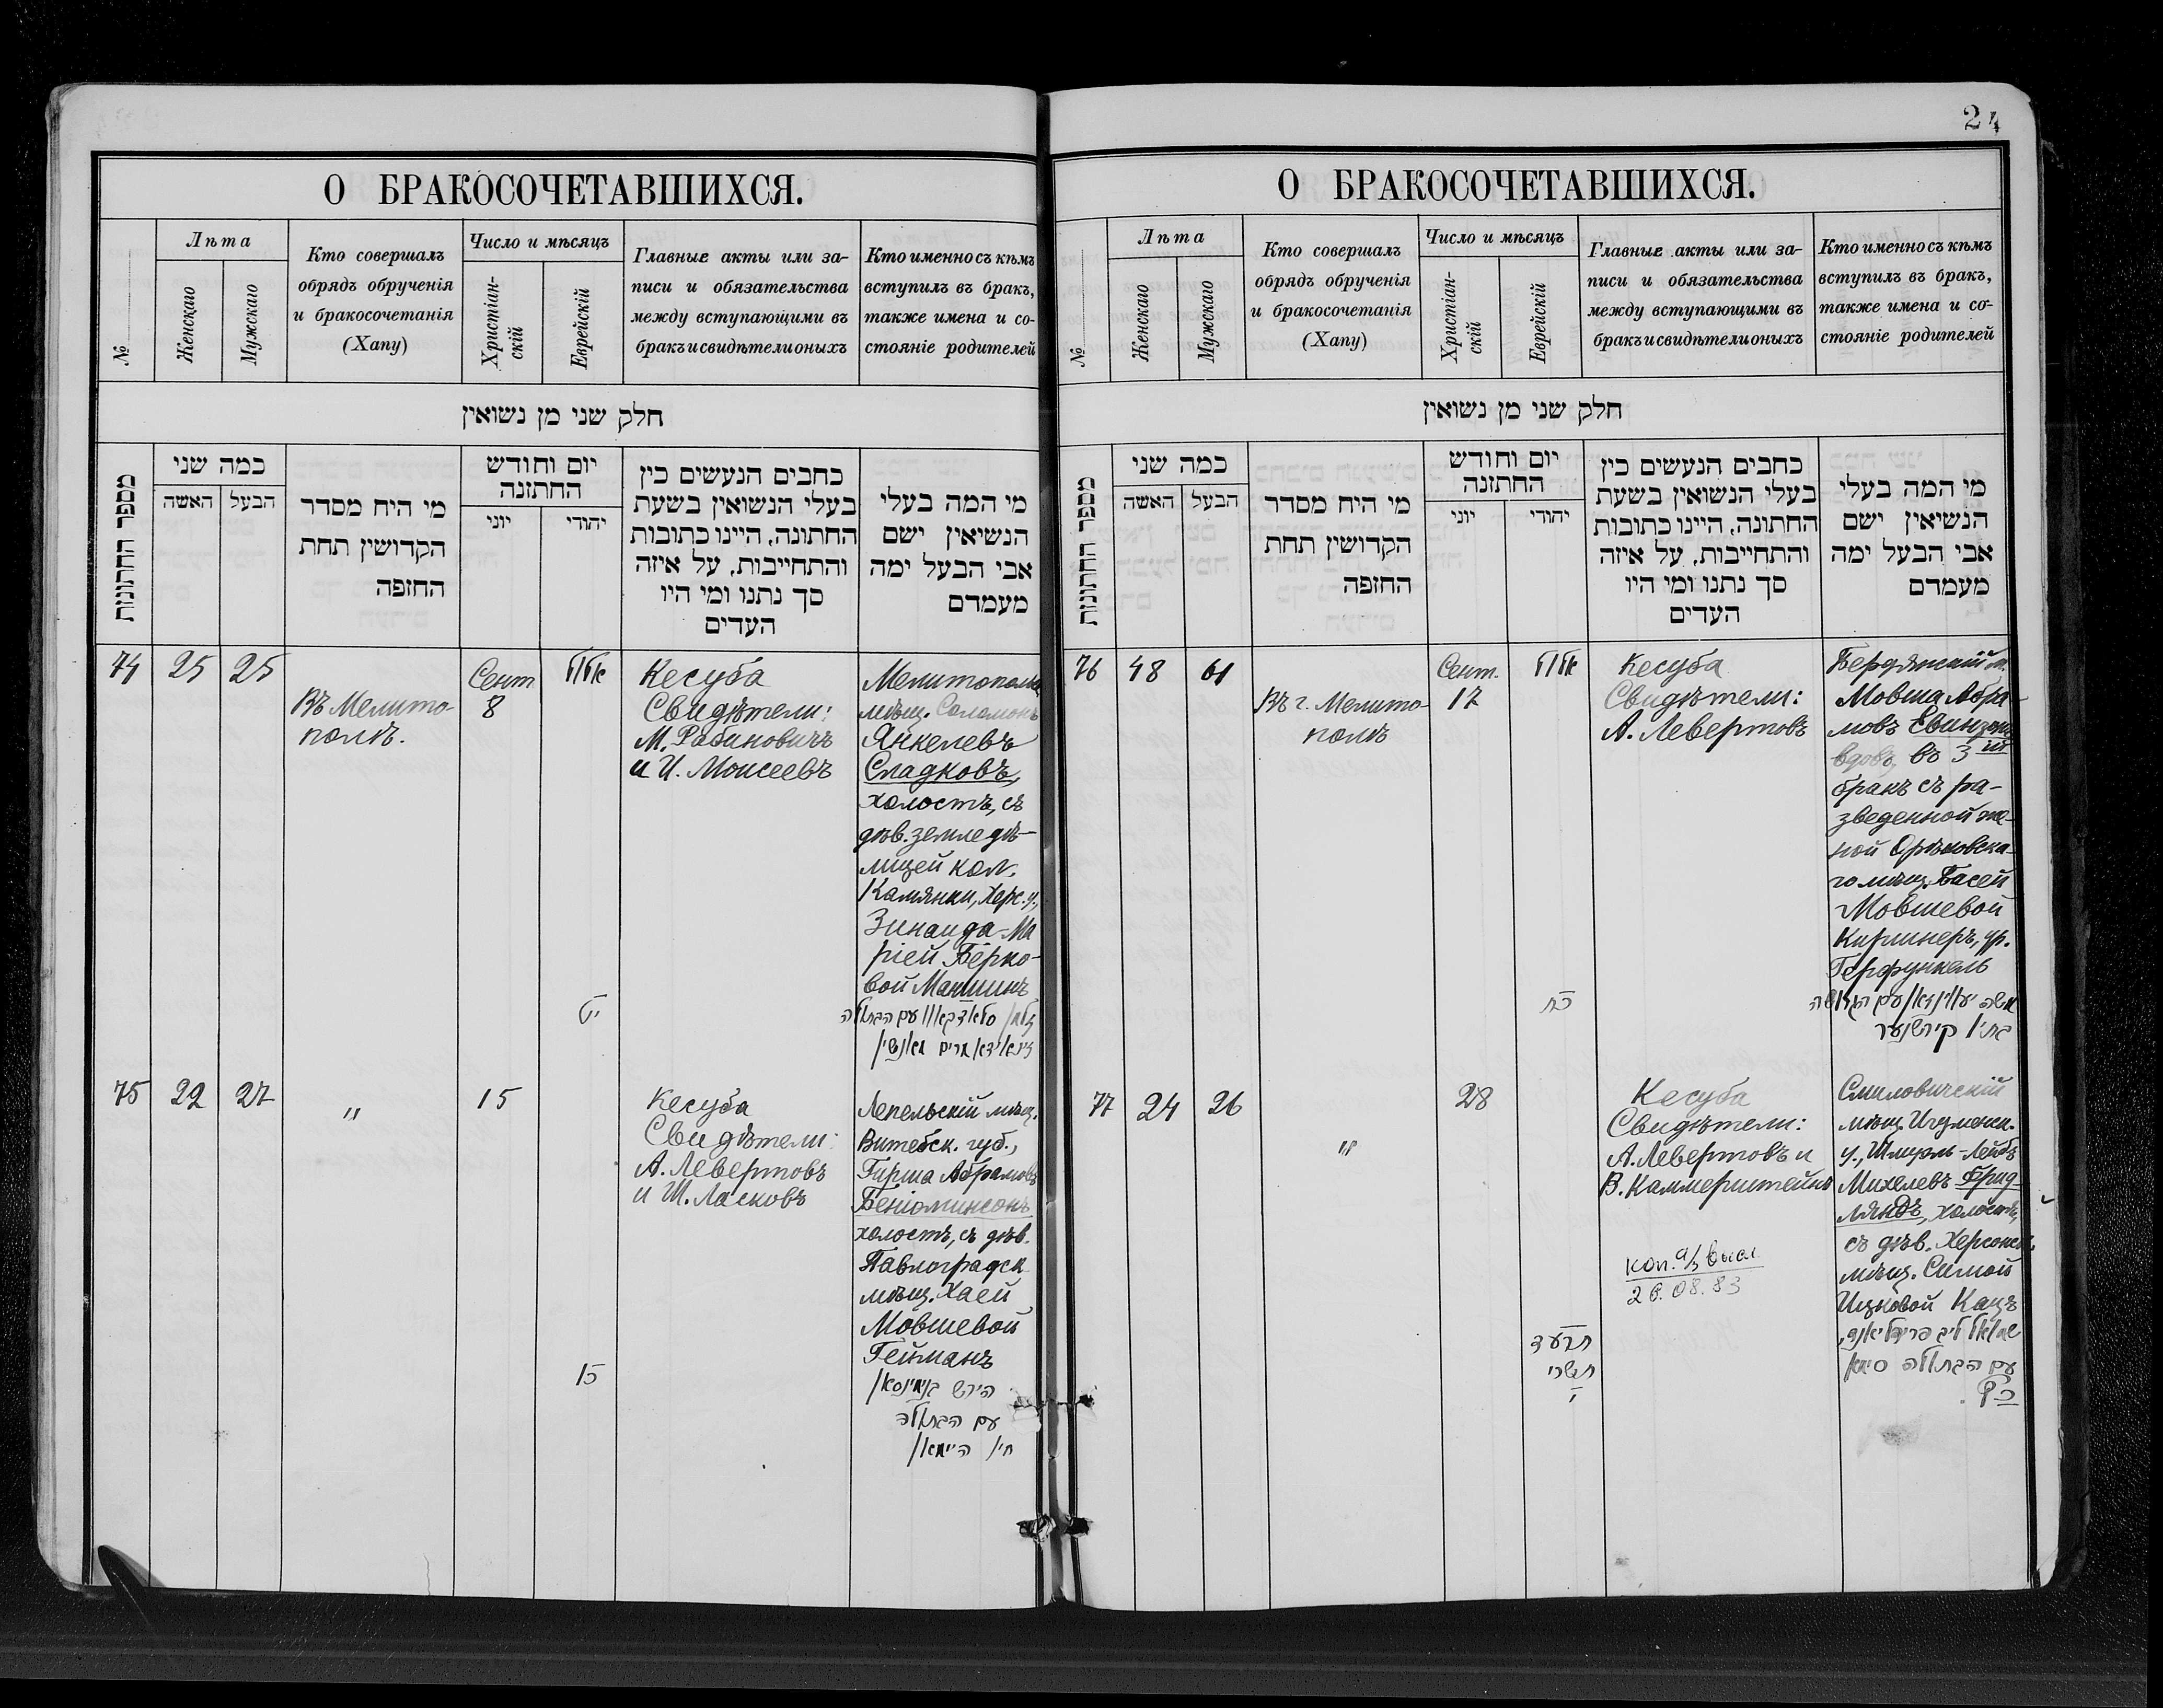 О БРАКОСОЧЕТАВШИХСЯ.
№
Лѣта
Женскаго
Мужскаго
Кто совершалъ
обрядъ обрученія
и бракосочетанія
(Хапу)
Число и мѣсяцъ
Христіан-
скій
Еврейскій
Главные акты или за-
писи и обязательства
между вступающими въ
бракъ и свидѣтели оныхъ
Кто именно съ кѣмъ
вступилъ въ бракъ,
также имена и со-
стояніе родителей
חלק שני מן נשואין
מספר החתונות
כמה שני
האשה
הבעל
מי היח מסדר
הקדושין תחת
החזפה
יום וחודש
החתזנה
יוני
יהודי
כחבים הנעשים כין
בעלי הנשואין בשעת
החתונה, היינו כתובות
והתחייבות, על איזה
סך נתנו ומי היו
העדים
מי המה בעלי
הנשיאין ישם
אבי הבעל ימה
מעמדם
74
25
25
Въ Мелито-
полѣ.
Сент
8
Кесуба
Свидѣтели:
М. Рабиновичъ
и И. Моисеевъ
Мелитопольск
мѣщ. Саломонъ
Янкелевъ
Сладковъ,
холостъ, съ
дѣв. земледѣ-
лицей кол.
Камянки, Херс. у.,
Зинаида-Ма
ріей Берко-
вой Маншинъ
יט
עם הבתולה
75
22
27
"
15
Кесуба
Свидѣтели:
А. Левертовъ
и Ш. Ласковъ
Лепельскій мѣщ.
Витебск. губ.,
Гирша Абрамовъ
Беніоминсонъ
холостъ, съ дѣв.
Павлоградск
мѣщ. Хаей
Мовшевой
Гейманъ
הירש בנימינסאן
עם הבתולה
חי' היימאן
24
О БРАКОСОЧЕТАВШИХСЯ.
№
Лѣта
Женскаго
Мужскаго
Кто совершалъ
обрядъ обрученія
и бракосочетанія
(Хапу)
Число и мѣсяцъ
Христіан-
скій
Еврейскій
Главные акты или за-
писи и обязательства
между вступающими въ
бракъ и свидѣтели оныхъ
Кто именно съ кѣмъ
вступилъ въ бракъ,
также имена и со-
стояніе родителей
חלק שני מן נשואין
מספר החתונות
כמה שני
האשה
הבעל
מי היח מסדר
הקדושין תחת
החזפה
יום וחודש
החתזנה
יוני
יהודי
כחבים הנעשים כין
בעלי הנשואין בשעת
החתונה, היינו כתובות
והתחייבות, על איזה
סך נתנו ומי היו
העדים
מי המה בעלי
הנשיאין ישם
אבי הבעל ימה
מעמדם
76
48
61
Въ г. Мелито-
полѣ
Сент.
17
Кесуба
Свидѣтели:
А. Левертовъ
Бердянскій м.
Мовша Абра-
мовъ
вдовъ, въ 3 ій
бракъ съ ра-
зведенной же-
ной Орѣховска-
го мѣщ. Басей
Мовшевой
Киршнеръ, ур.
Герфункель
עם הגרושה
77
24
26
"
28
Кесуба
Свидѣтели:
А. Левертовъ и
В. Каммерштейнъ
коп. а/з высл
26.08.83
תרע״ד
תשרי
י
Смиловичскій
мѣщ. Игуменск.
у., Шмуэль-Лейбъ
Михелевъ Фрид-
ляндъ, холостъ,
съ дѣв. Херсонск.
мѣщ. Симой
Ицковой Кацъ
שמואל ליב פרידליאנד,
עם הבתולה סימא
כץ.